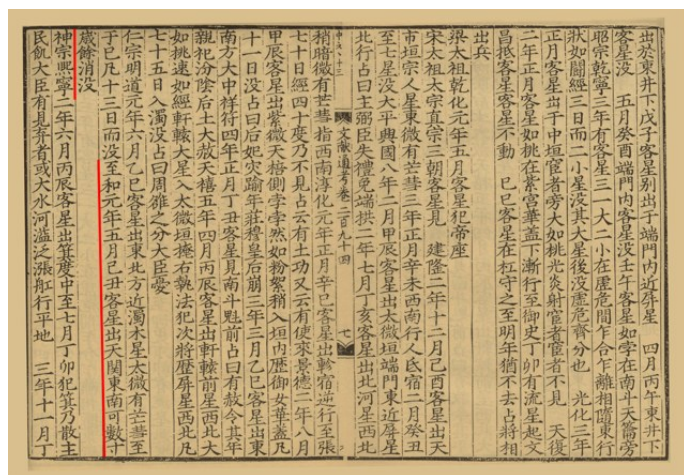 出於東井下戊子客星別出于端門内近屏星　四月丙午東井下
客星没　五月癸酉端門内客星没壬午客星如孛在南斗天籥旁
耶宗乾寧三年有客星三一大二小在虛危間乍合乍離相隨東行
狀如鬬經三日而二小星没其大星後没虛危齊分也　光化三年
正月客星出于中垣宦者旁大如桃光炎射宦者宦者不見　天復
二年正月客星如桃在紫宮華蓋下漸行至御史丁卯有流星起文
昌抵客星客星不動　己巳客星在杠守之至明年猶不去占將相
出兵
梁太祖乾化元年五月客星犯帝座
宋太祖太宗真宗三朝客星見　建隆二年十二月己酉客星出天
市垣宗人星東微有芒彗三年正月辛未西南行入氐宿二月癸丑
至七星没太平興國八年二月甲辰客星出太微垣端門東近屏星
北行占曰主弼臣失禮免端拱二年七月丁亥客星出北河星西北
文獻通考卷二百九十四
七
稍暗微有芒彗指西南淳化元年正月辛巳客星出軫宿逆行至張
七十日經四十度乃不見占云有土功又云有使來景德二年八月
甲辰客星出紫微天棓側孛孛然如粉絮稍入垣内歴御女華蓋凡
十一日没占曰后妃灾踰年莊穆皇后崩三年三月乙巳客星出東
南方大中祥符四年正月丁丑客星見南斗魁前占曰有赦今其年
親祀汾陰后土大赦天禧五年四月丙辰客星出軒轅前星西北大
如桃速如經軒轅大星入太微垣掩右執法犯次將歴屏星西北凡
七十五日入濁没占曰周雒之分大臣憂
仁宗明道元年六月乙巳客星出東北方近濁木星太微有芒彗至
于己凡十三日而没至和元年五月己丑客星出天關東南可數寸
歲餘消没
神宗熙寧二年六月丙辰客星出箕度中至七月丁卯犯箕乃散主
民飢大臣有見弃者或大水河溢泛漲舡行平地　三年十一月丁